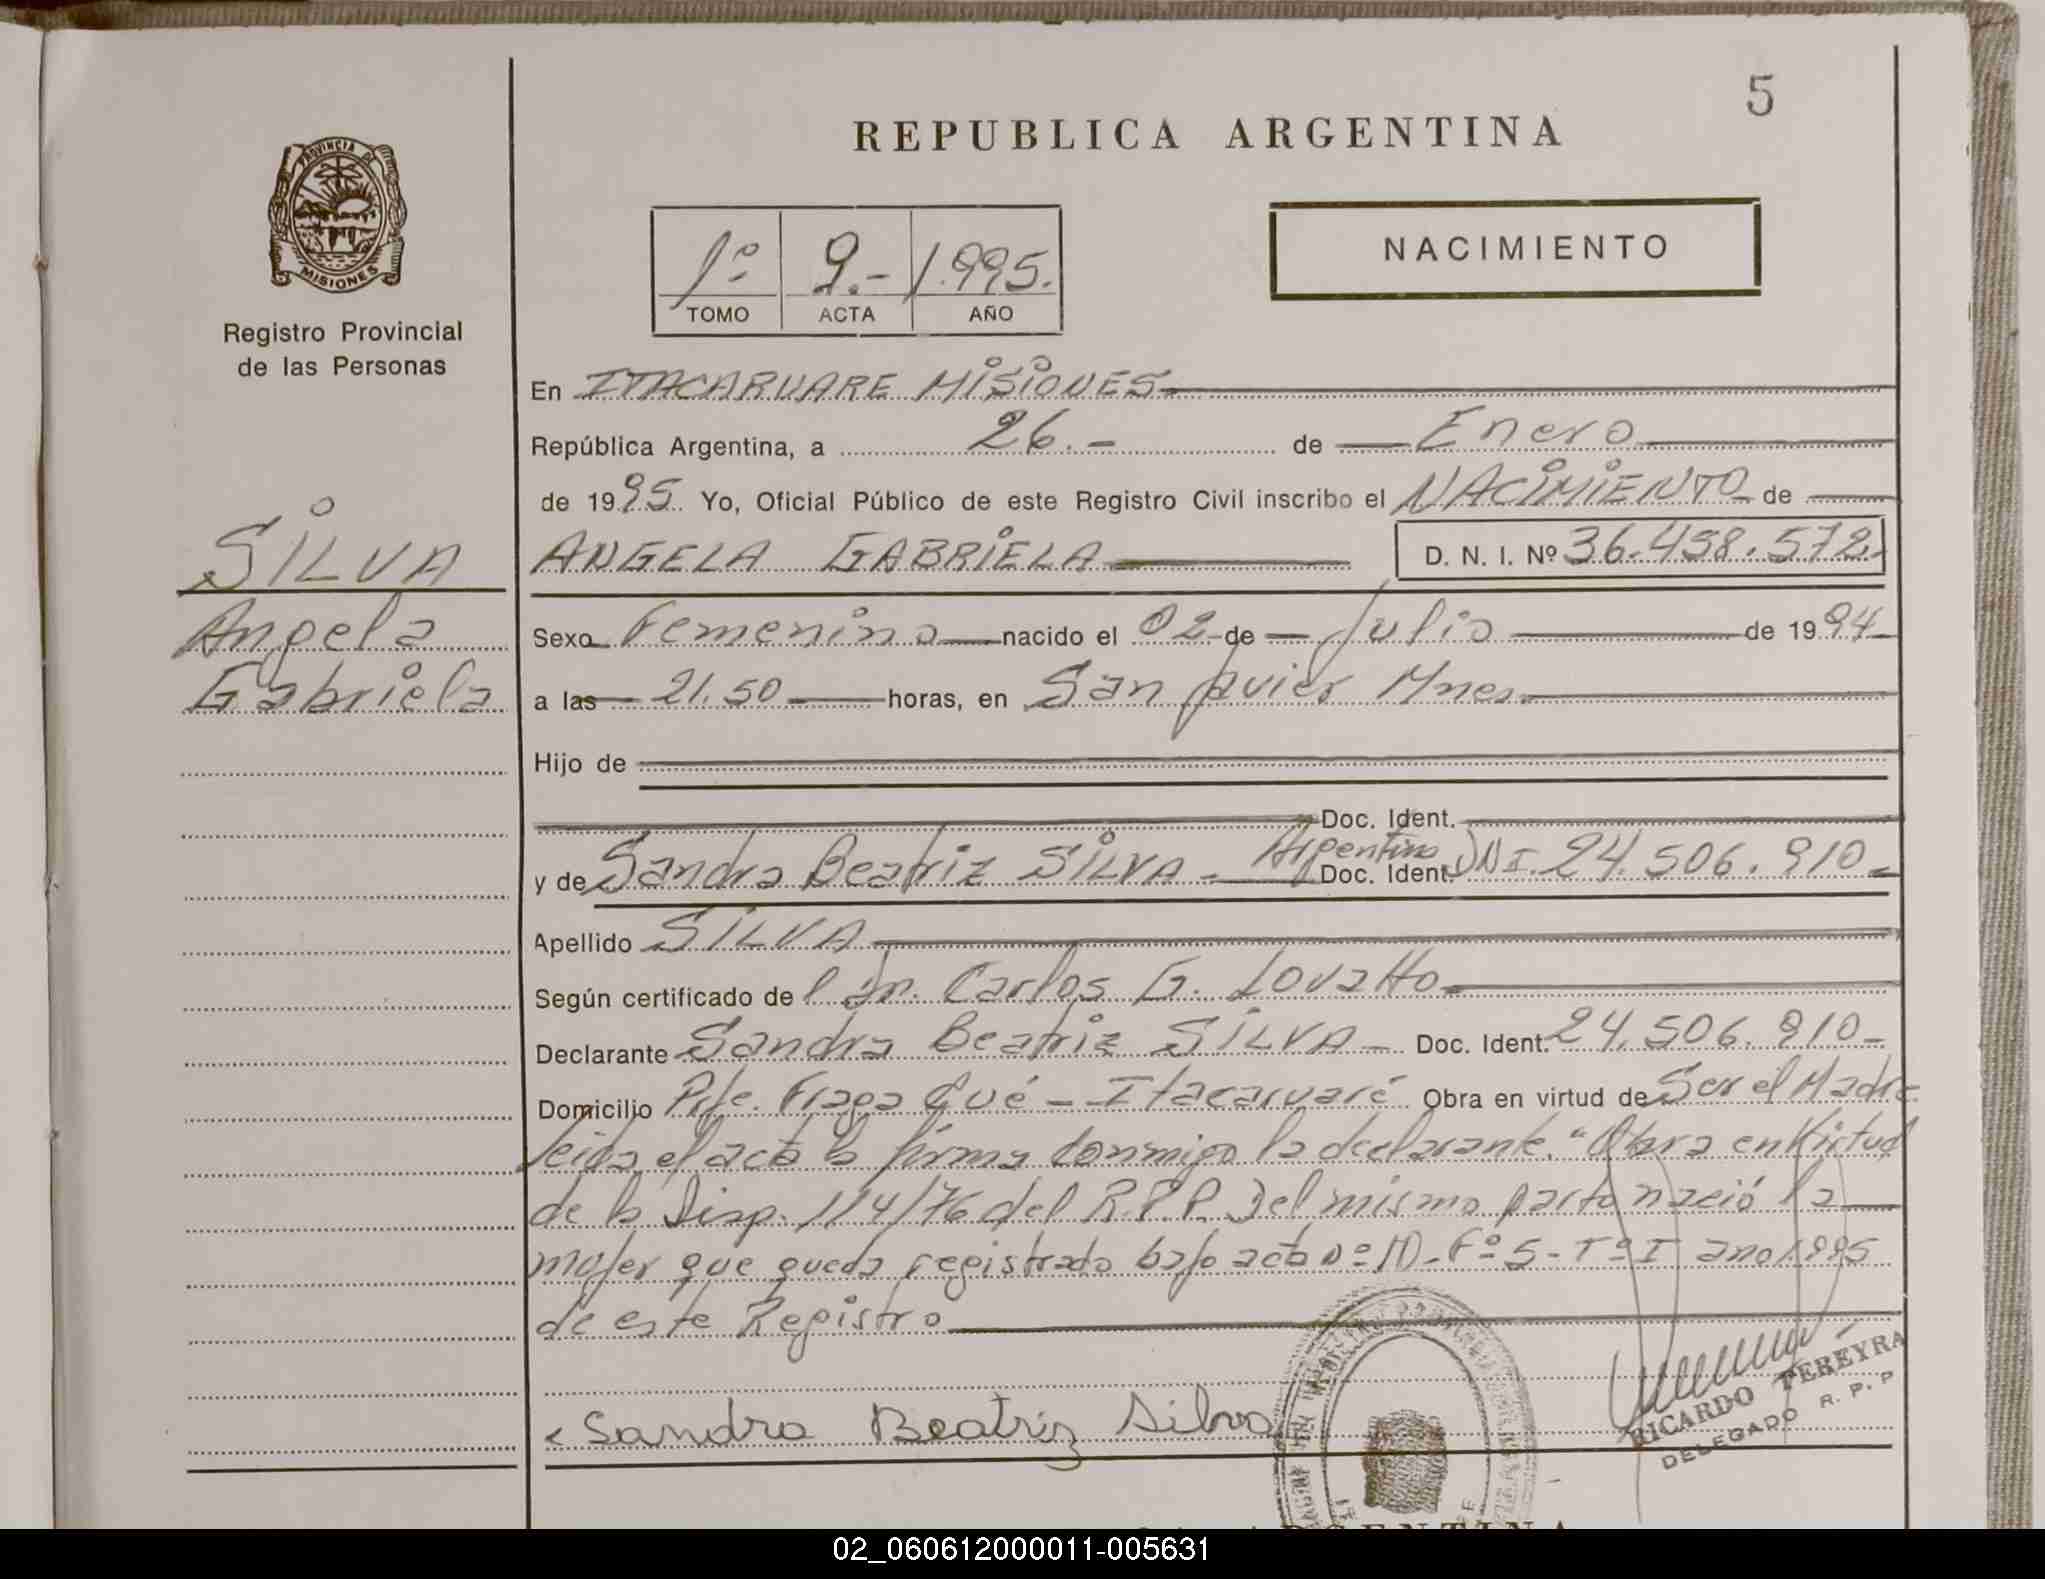 5
REPUBLICA ARGENTINA
PROVINCIA DE
MISIONES
Registro Provincial
de las Personas
1º 9.- 1.995.
TOMO ACTA AÑO
NACIMIENTO
En ITACARUARE MISIONES
República Argentina, a 26.- de Enero
de 1995. Yo, Oficial Público de este Registro Civil inscribo el NACIMIENTO de
SILVA
ANGELA GABRIELA D. N. I. Nº 36.438.572.
Angela
Sexo Femenino nacido el 02 de Julio de 1994
Gabriela
a las 21.50 horas, en San Javier Mnes.
Hijo de
Doc. Ident.
y de Sandra Beatriz SILVA - Argentino Doc. Ident. DNI. 24.506.910-
Apellido SILVA
Según certificado de Carlos G. Lovatto
Declarante Sandra Beatriz SILVA - Doc. Ident. 24.506.910-
Domicilio Pje. Fraga Cué - Itacaruaré Obra en virtud de Ser el Madre
leida el acta la firma conmigo la declarante. "Obra en Virtud
de la Disp. 114/76 del R.P.P. Del mismo parto nació la
mujer que queda registrada bajo acta Nº 10- Fº 5- Tº I año 1995
de este Registro
Sandra Beatriz Silva
RICARDO PEREYRA
DELEGADO R. P. P
02_060612000011-005631